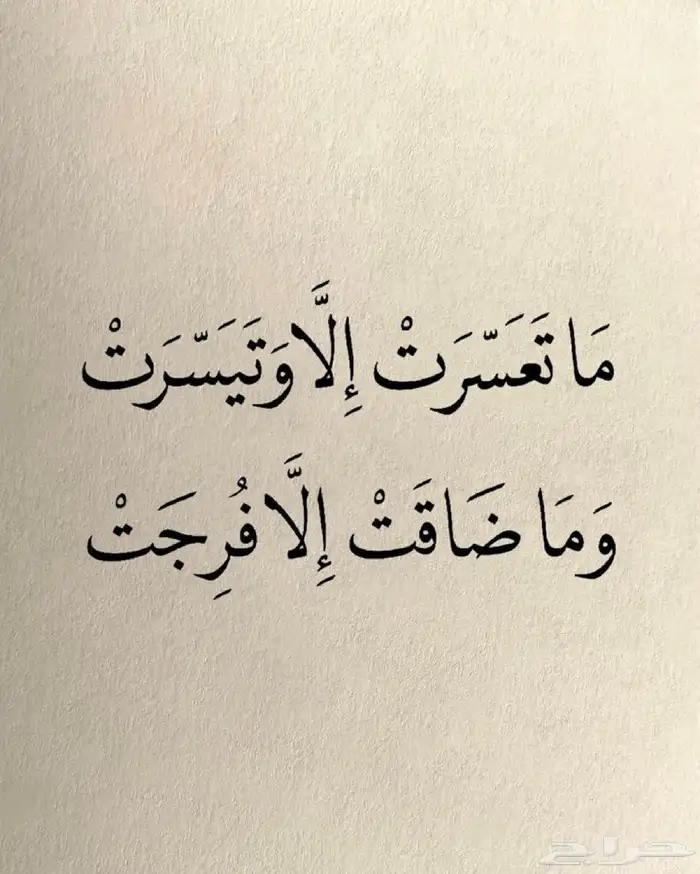 مَا تَعَسَّرَتْ إِلَّا وَتَيَسَّرَتْ
وَمَا ضَاقَتْ إِلَّا فُرِجَتْ
حراج